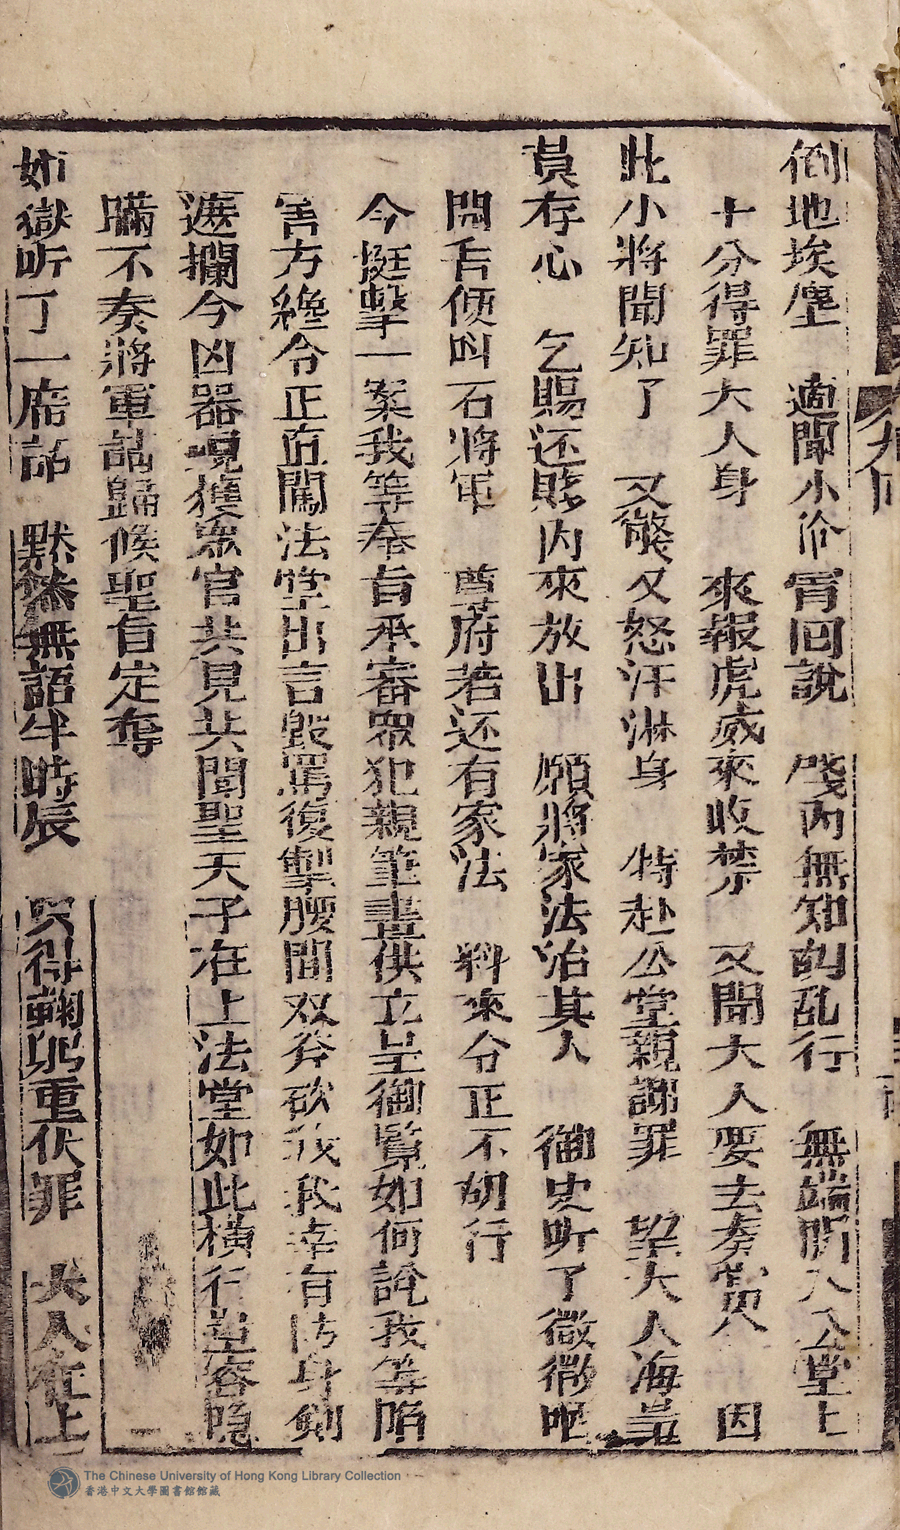 倒地埃塵 適聞小 회說 賤內無知胡乱行 無端闖入公堂上
十分得罪大人身 來報虎威來收禁 又聞大人要去奏當 因
此小將聞知了 又驚又怒汗淋身 特赴公堂親謝罪 望大人海
存心 乞賜还賤內來放出 願將家法治其人 御史听了微微
問舌便叫石將軍 尊府若还有家法 料來令正不胡行
今挺擊一案我等奉旨承審眾犯親筆畫供立呈御覧如何說我等陷
害方纔令正直闖法堂出言毀罵復掣腰間双斧砍我我幸有防身劍
遮攔今凶器現獲眾官共見共聞聖天子在上法堂如此橫行豈容隐
瞞不奏將軍請歸候聖旨定奪
獄听了一席話 默然無語半時辰 只得鞠躬重伏罪 大人在上
The Chinese University of Hong Kong Library Collection
香港中文大學圖書館館藏